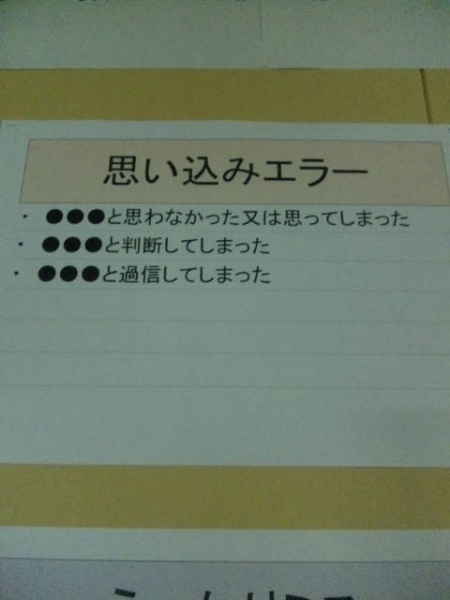 思い込みエラー
・ ●●●と思わなかった又は思ってしまった
・ ●●●と判断してしまった
・ ●●●と過信してしまった